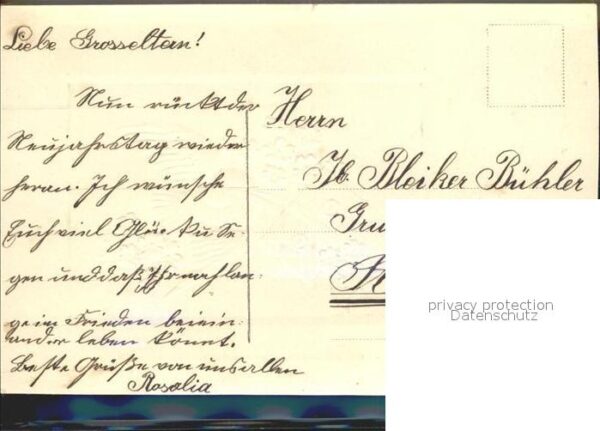 Liebe Grosseltern!
Nun rückt der
Neujahrstag wieder
heran. Ich wünsche
Euch viel Glück u Se-
gen und daß Ihr noch lan-
ge im Frieden beiein-
ander leben könnt.
Beste Grüße von uns allen
Rosalia
Herrn
Jb. Bleiker Bühler
privacy protection
Datenschutz